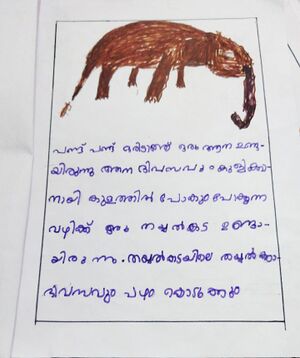 പണ്ട് പണ്ട് ഒരിടത്ത് ഒരു ആന ഉണ്ടാ-
യിരുന്നു ആന ദിവസവും കുളിക്കാ-
നായി കുളത്തിൽ പോകും പോകുന്ന
വഴിക്ക് ഒരു തയ്യൽകട ഉണ്ടാ-
യിരുന്നു. തയ്യൽകടയിലെ തയ്യൽക്കാ-
ദിവസവും പഴം കൊടുക്കും